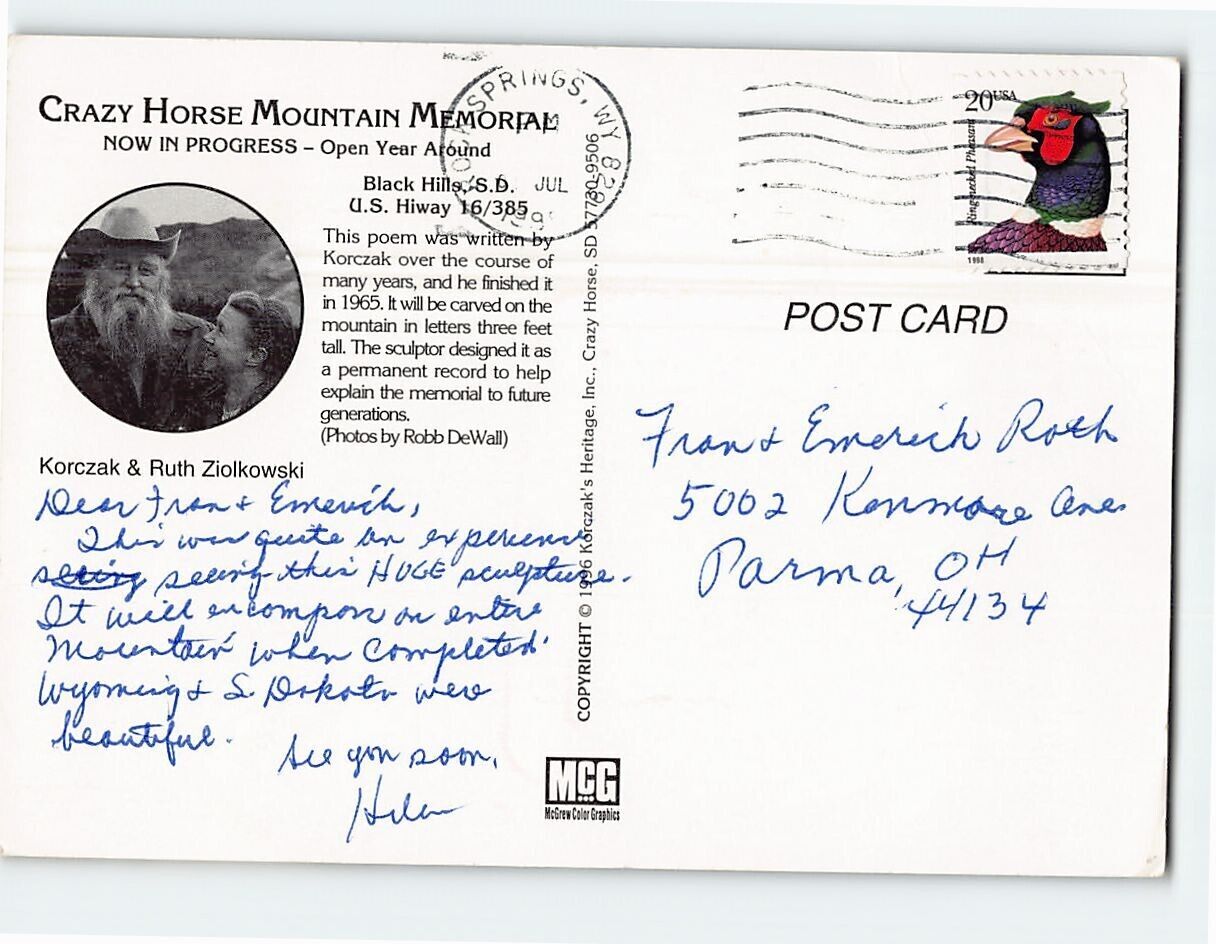 CRAZY HORSE MOUNTAIN MEMORIAL
NOW IN PROGRESS – Open Year Around
Black Hills, S.D.
U.S. Hiway 16/385
This poem was written by
Korczak over the course of
many years, and he finished it
in 1965. It will be carved on the
mountain in letters three feet
tall. The sculptor designed it as
a permanent record to help
explain the memorial to future
generations.
(Photos by Robb DeWall)
Korczak & Ruth Ziolkowski
Dear Fran & Emerich,
This was quite an experience
seeing this HUGE sculpture.
It will encompass an entire
Mountain when completed.
Wyoming & S. Dakota were
beautiful.
See you soon,
Helen
COPYRIGHT © 1996 Korczak's Heritage, Inc., Crazy Horse, SD 57730-9506
MCG
McGrew Color Graphics
SPRINGS, WY
JUL
20 USA
Ring-necked Pheasant
1998
POST CARD
Fran & Emerich Roth
5002 Kenmore Ave.
Parma, OH
44134